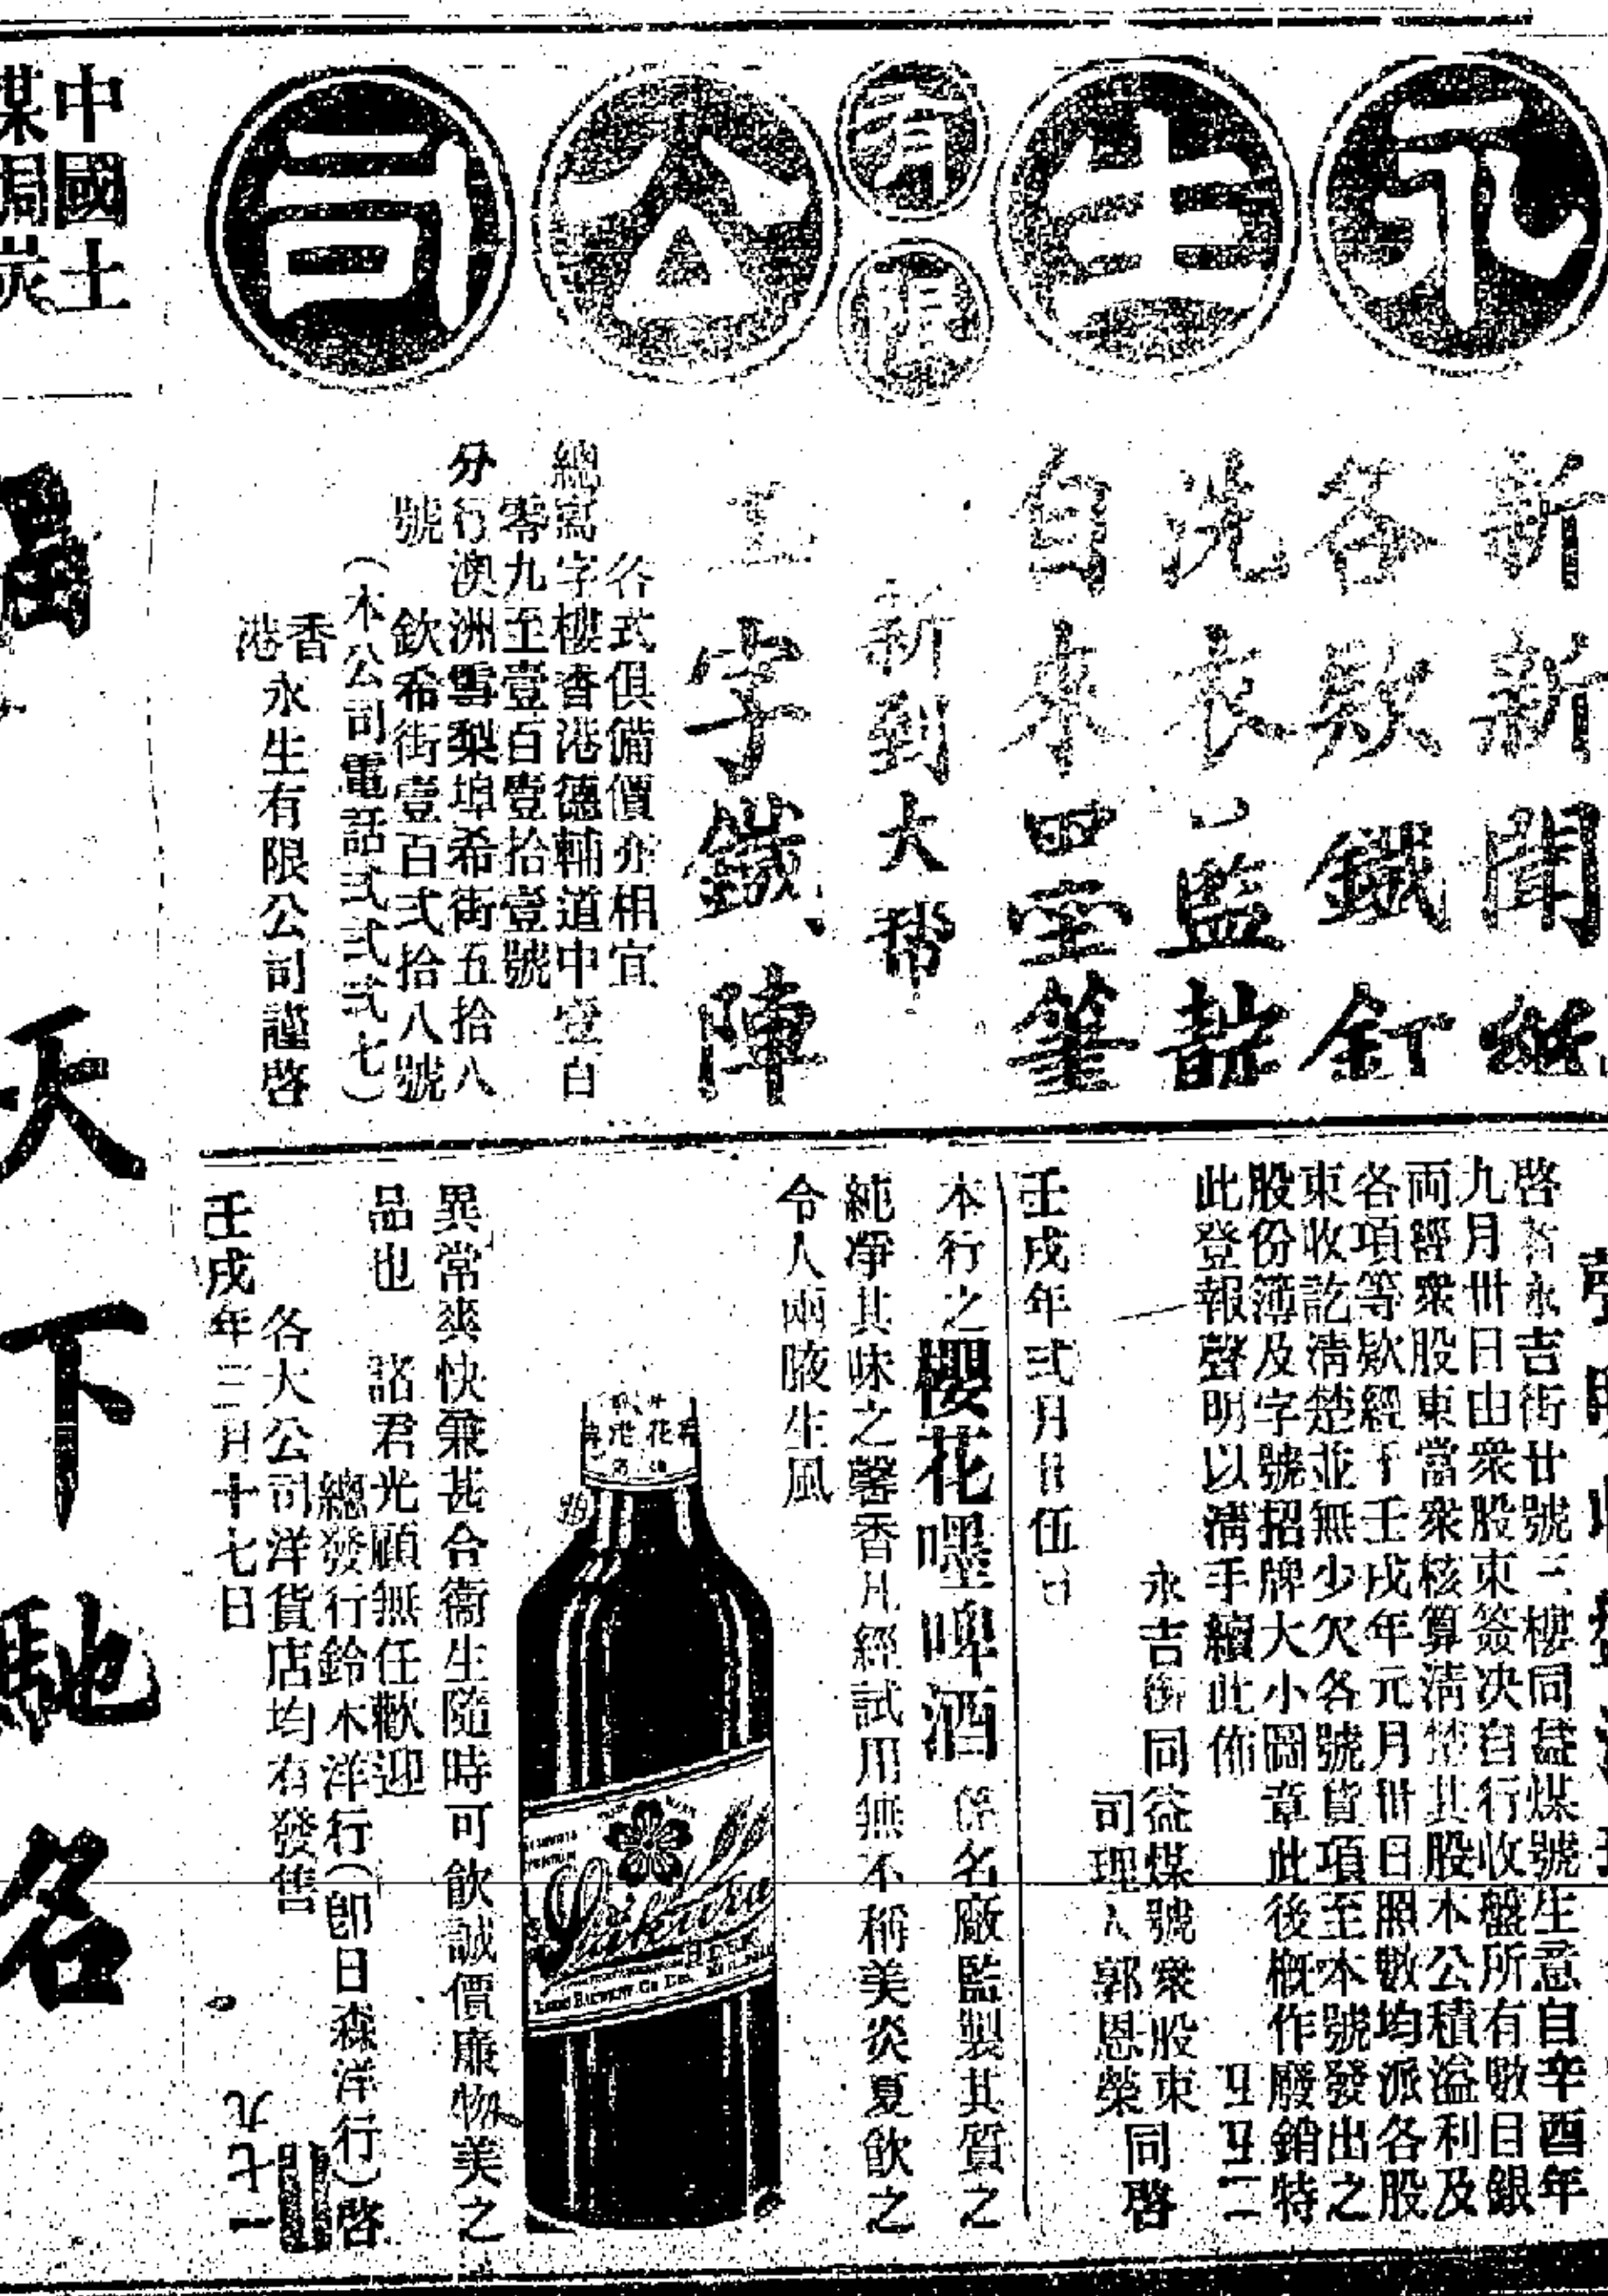 永生有限公司
新新聞紙
各欵鐵釘
洗衣監梘
自來墨筆
新到大幫
工字鐵陣
各式俱備價亦相宜
總寫字樓香港德輔道中壹百
零九至壹百壹拾壹號
分行澳洲雪梨埠希街五拾八
號 欽希街壹百弍拾八號
(本公司電話弍弍弍七)
香港永生有限公司謹啓
啓者永吉街廿號三樓同益煤號生意自辛酉年
九月卅日由衆股東簽决自行收盤所有數目銀
両經衆股東當衆核算清楚其股本公積溢利及
各項等欵經于壬戌年元月卅日照數均派各股
東收訖清楚並無少欠各號貨項至本號發出之
股份簿及字號招牌大小圖章此後概作廢銷特
此登報聲明以清手續此佈
永吉街同益煤號衆股東
司理人郭恩榮 同啓
壬戌年弍月廿伍日
本行之櫻花嘿啤酒係名廠監製其質之
純凈其味之馨香凡經試用無不稱美炎夏飲之
令人兩腋生風
Sakura
BEER
異常爽快兼甚合衞生隨時可飲誠價廉物美之
品也 諮君光顧無任歡迎
總發行鈴木洋行(卽日森洋行)啓
各大公司洋貨店均有發售
壬戌年三月十七日
九七一
中國土
煤焗炭
天下馳名